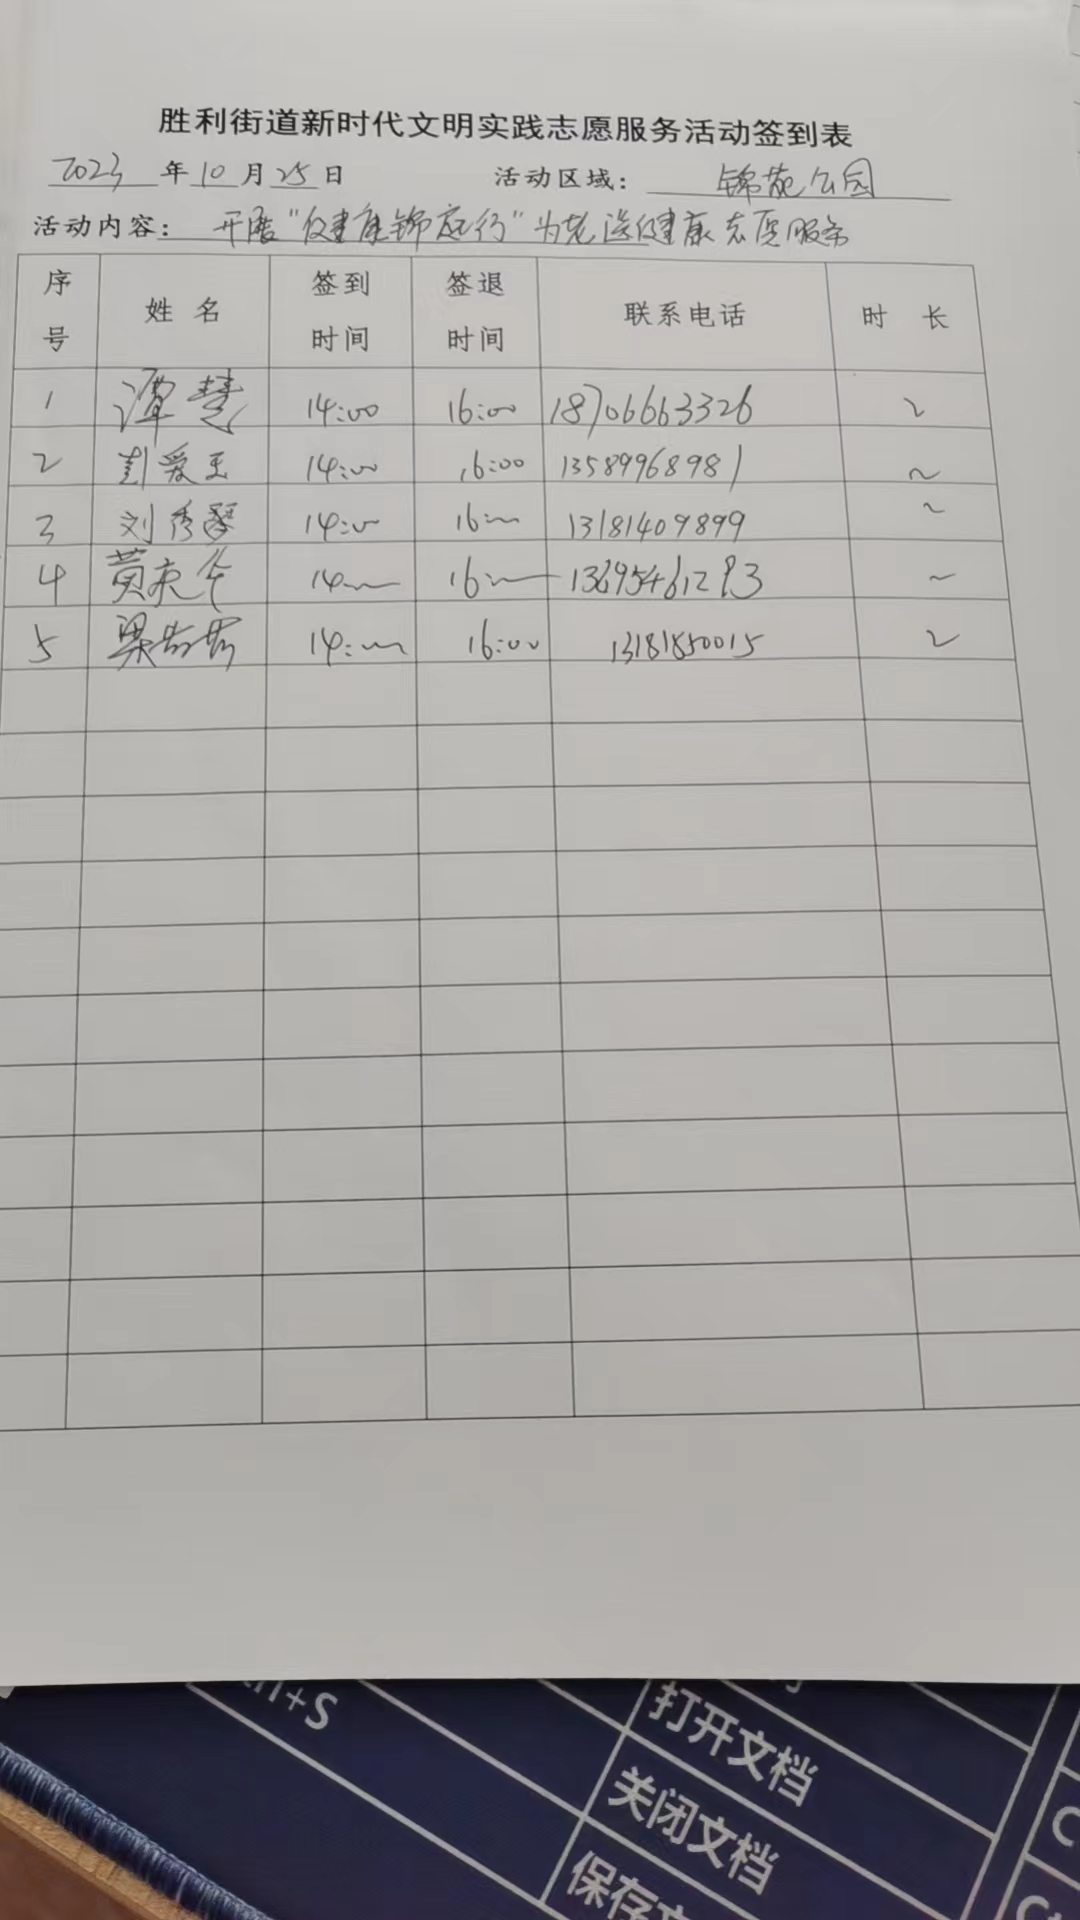 胜利街道新时代文明实践志愿服务活动签到表
2023年10月25日 活动区域: 锦苑公园
活动内容: 开展"健康锦庭行"为老送健康志愿服务
序号 姓名 签到时间 签退时间 联系电话 时长
1 谭慧 14:00 16:00 18706663326 2
2 彭爱玉 14:00 16:00 13589968981 ~
3 刘秀琴 14:00 16:00 13181409899 ~
4 黄 14:00 16:00 13695461293 ~
5 梁 14:00 16:00 13181850015 2
+S
打开文档
关闭文档
保存